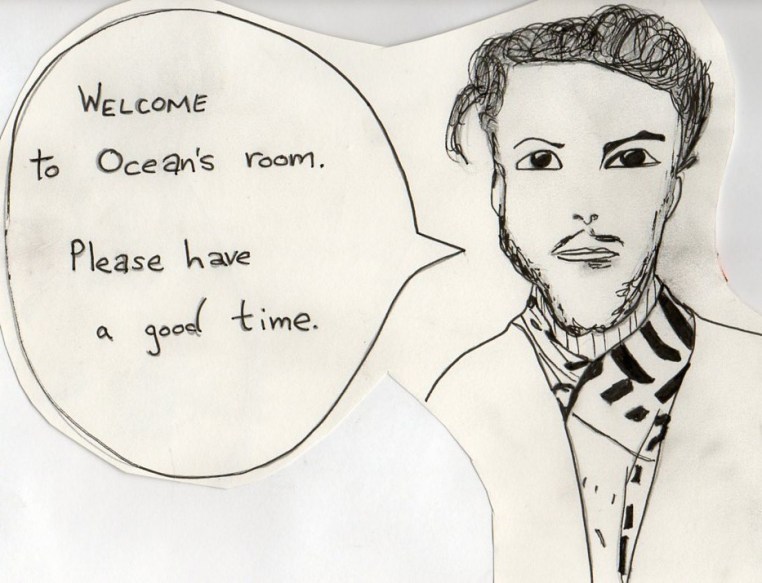 WELCOME
to Ocean's room.
Please have
a good time.